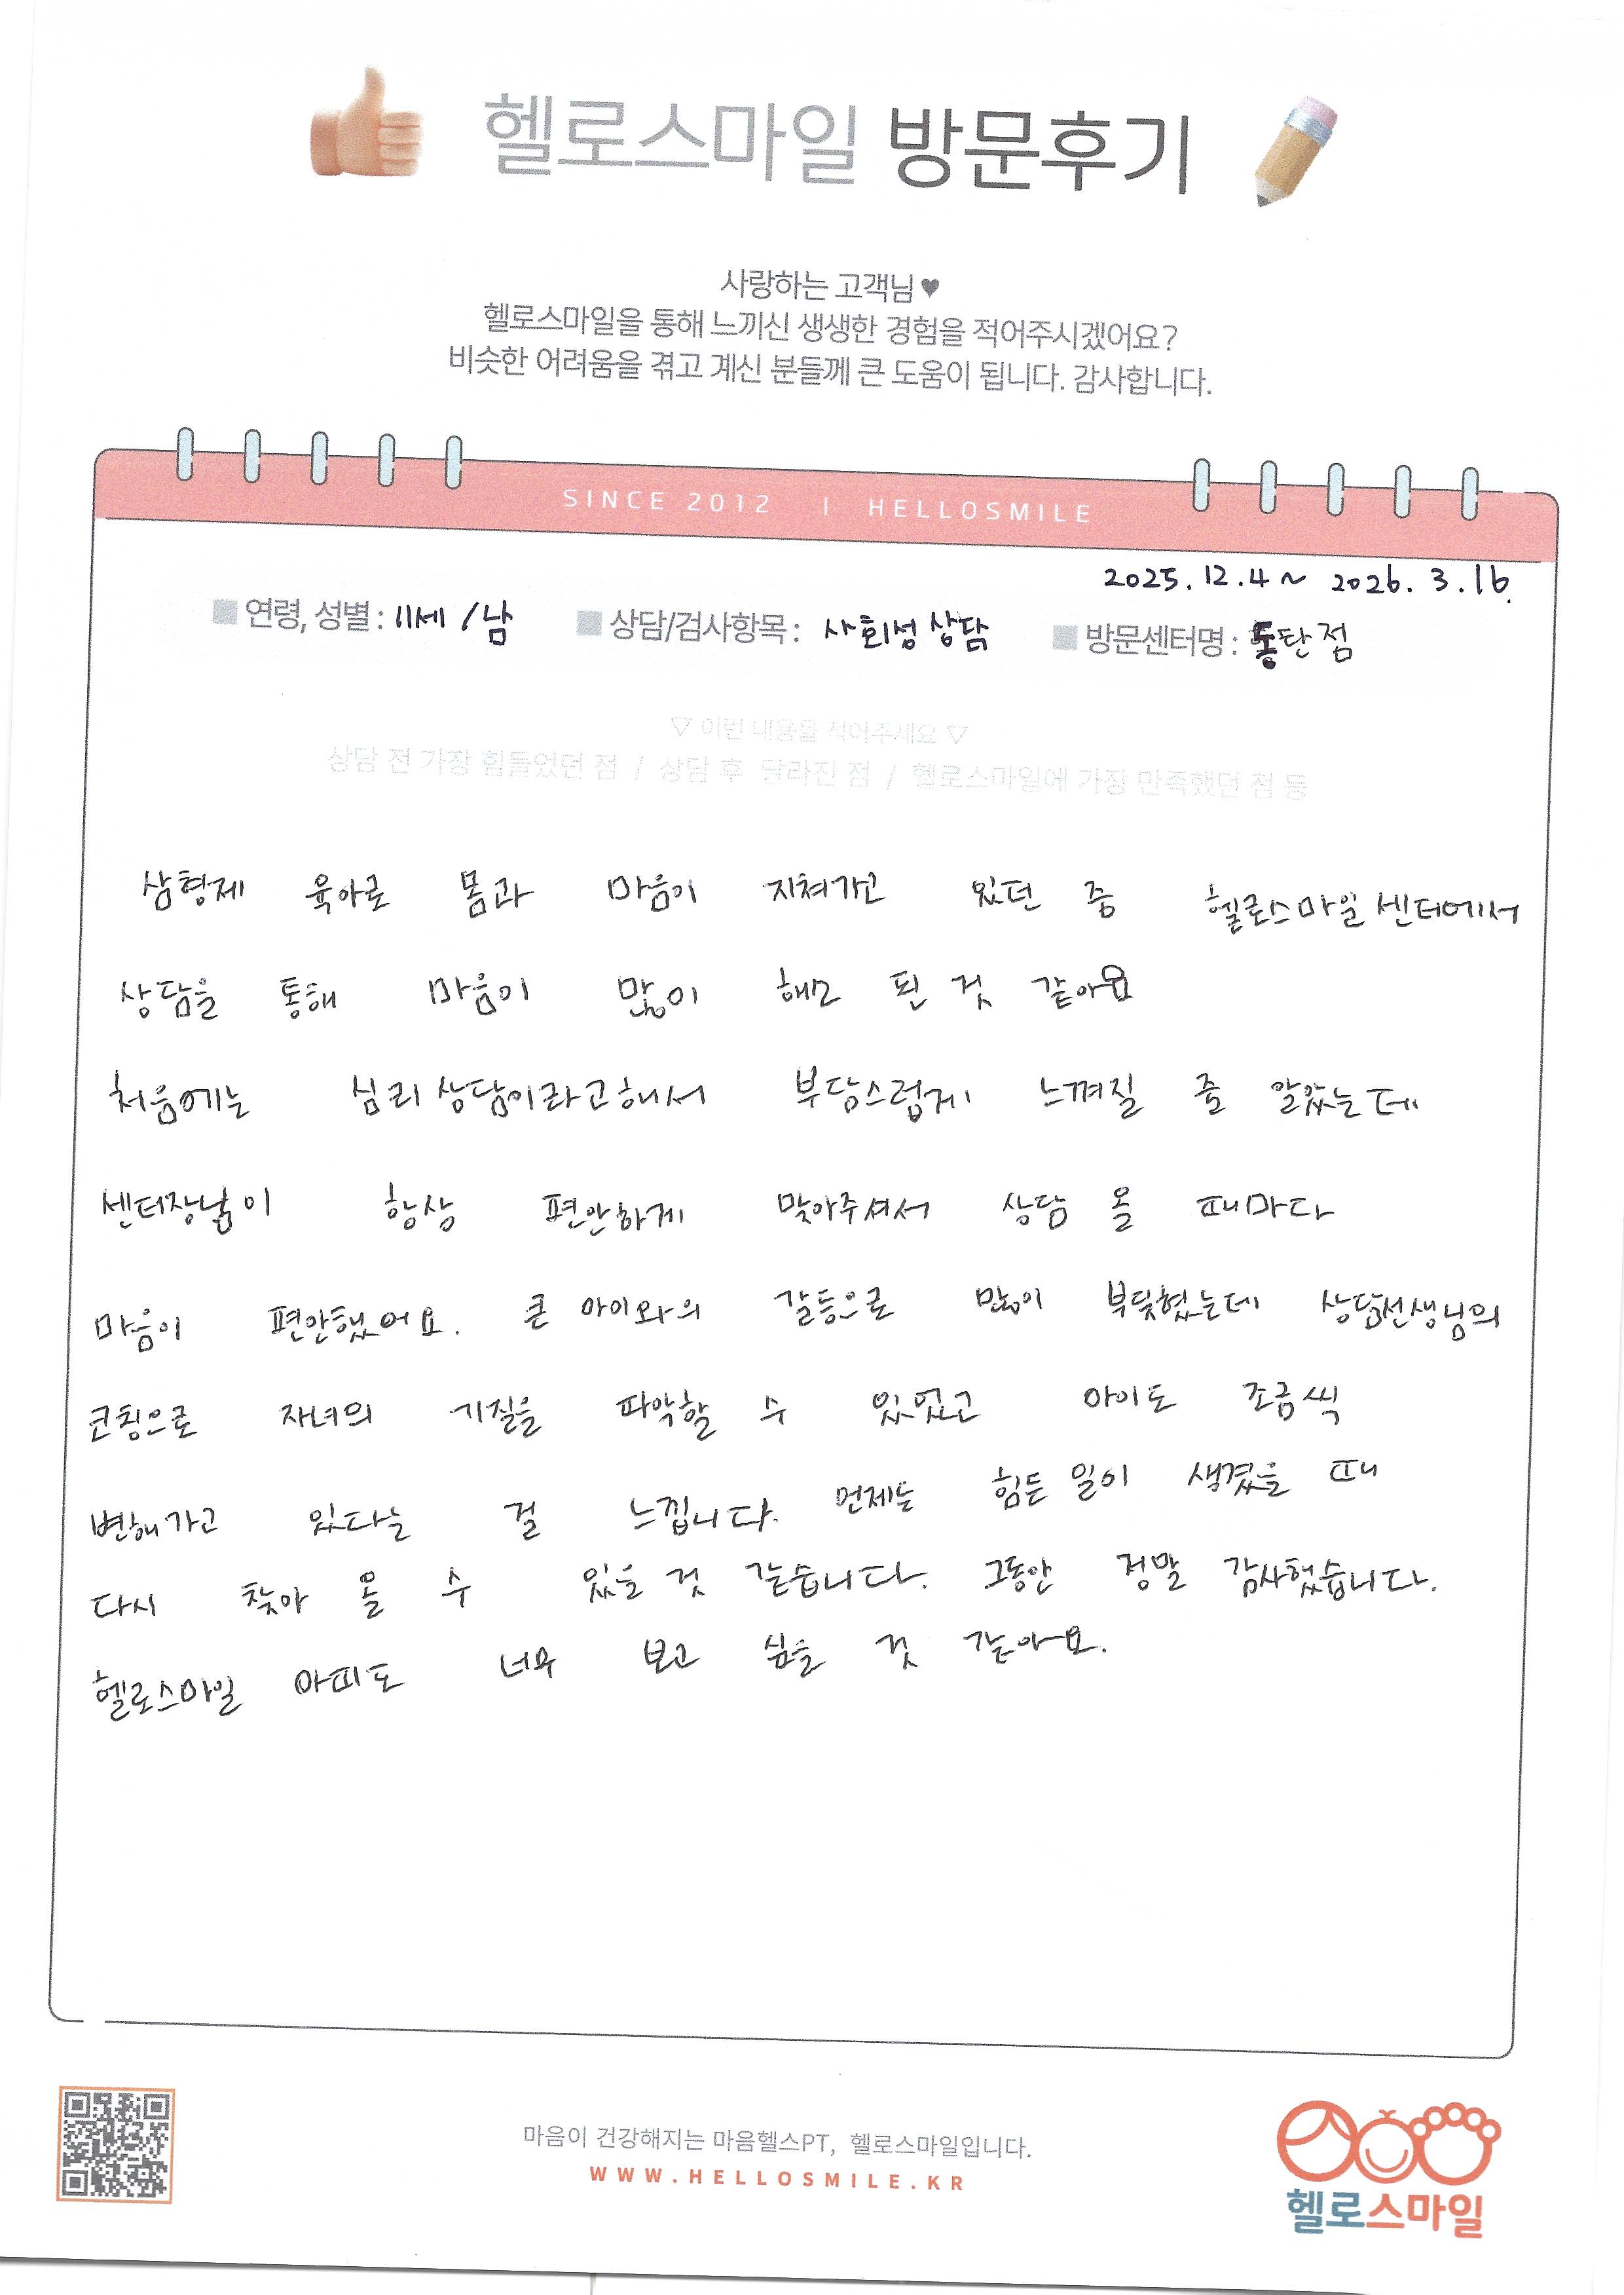 헬로스마일 방문후기
사랑하는 고객님♥
헬로스마일을 통해 느끼신 생생한 경험을 적어주시겠어요?
비슷한 어려움을 겪고 계신 분들께 큰 도움이 됩니다. 감사합니다.
SINCE 2012 | HELLOSMILE
2025.12.4~ 2026.3.16.
연령, 성별: 11세/남 상담/검사항목: 사회성 상담 방문센터명: 동탄점
▽ 이런 내용을 적어주세요 ▽
상담 전 가장 힘들었던 점 / 상담 후 달라진 점 / 헬로스마일에 가장 만족했던 점 등
삼형제 육아로 몸과 마음이 지쳐가고 있던 중 헬로스마일 센터에서
상담을 통해 마음이 많이 해소 된 것 같아요
처음에는 심리상담이라고해서 부담스럽게 느껴질 줄 알았는데
센터장님이 항상 편안하게 맞아주셔서 상담 올 때마다
마음이 편안했어요. 큰 아이와의 갈등으로 많이 부딪혔는데 상담선생님의
코칭으로 자녀의 기질을 파악할 수 있었고 아이도 조금씩
변해가고 있다는 걸 느낍니다. 언제든 힘든 일이 생겼을 때
다시 찾아 올 수 있을 것 같습니다. 그동안 정말 감사했습니다.
헬로스마일 마피도 너무 보고 싶을 것 같아요.
마음이 건강해지는 마음헬스PT, 헬로스마일입니다.
WWW.HELLOSMILE.KR
헬로스마일